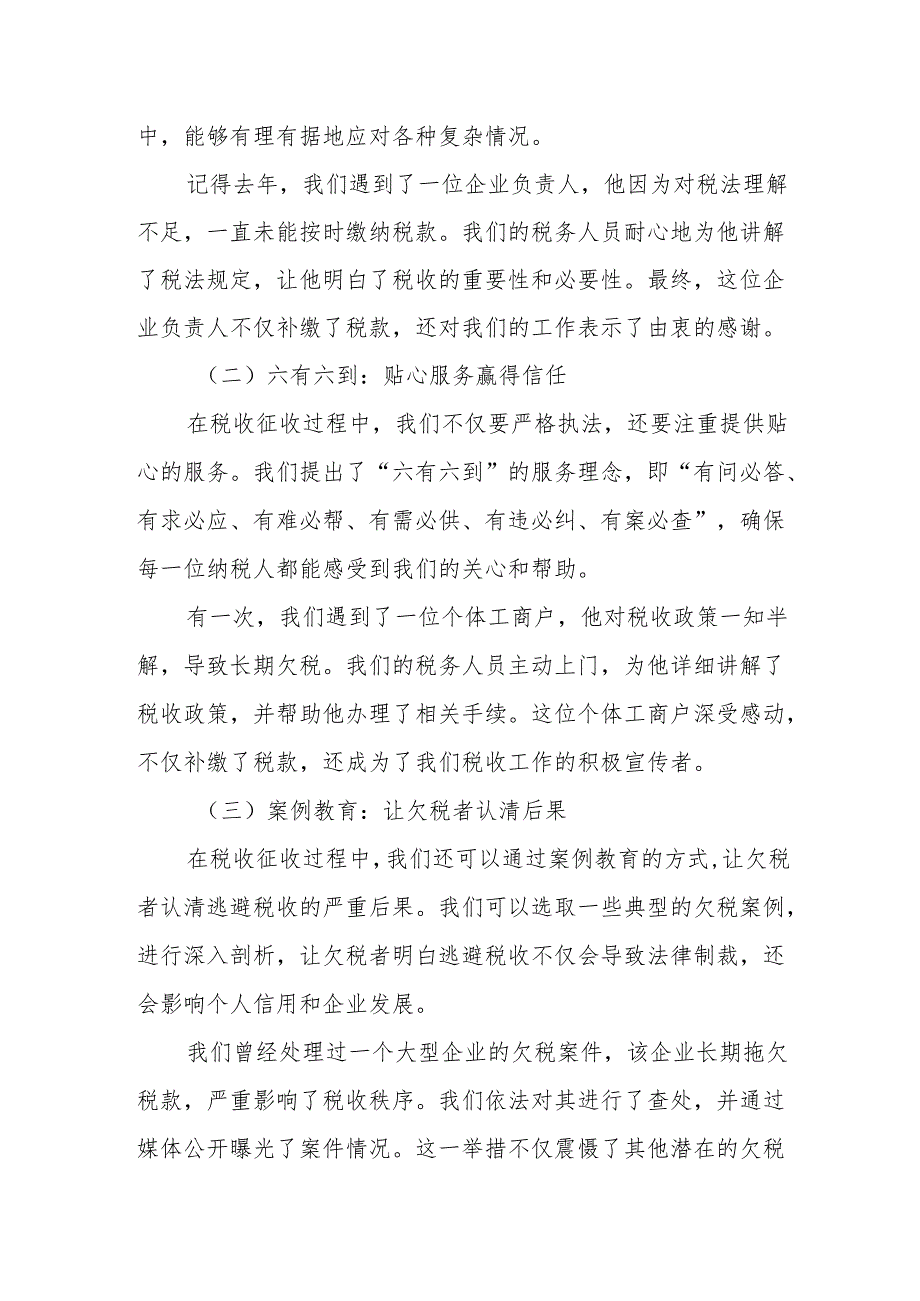 中，能够有理有据地应对各种复杂情况。
记得去年，我们遇到了一位企业负责人，他因为对税法理解
不足，一直未能按时缴纳税款。我们的税务人员耐心地为他讲解
了税法规定，让他明白了税收的重要性和必要性。最终，这位企
业负责人不仅补缴了税款，还对我们的工作表示了由衷的感谢。
（二）六有六到：贴心服务赢得信任
在税收征收过程中，我们不仅要严格执法，还要注重提供贴
心的服务。我们提出了“六有六到”的服务理念，即“有问必答、
有求必应、有难必帮、有需必供、有违必纠、有案必查”，确保
每一位纳税人都能感受到我们的关心和帮助。
有一次，我们遇到了一位个体工商户，他对税收政策一知半
解，导致长期欠税。我们的税务人员主动上门，为他详细讲解了
税收政策，并帮助他办理了相关手续。这位个体工商户深受感动，
不仅补缴了税款，还成为了我们税收工作的积极宣传者。
（三）案例教育：让欠税者认清后果
在税收征收过程中,我们还可以通过案例教育的方式,让欠税
者认清逃避税收的严重后果。我们可以选取一些典型的欠税案例，
进行深入剖析，让欠税者明白逃避税收不仅会导致法律制裁，还
会影响个人信用和企业发展。
我们曾经处理过一个大型企业的欠税案件，该企业长期拖欠
税款，严重影响了税收秩序。我们依法对其进行了查处，并通过
媒体公开曝光了案件情况。这一举措不仅震慑了其他潜在的欠税